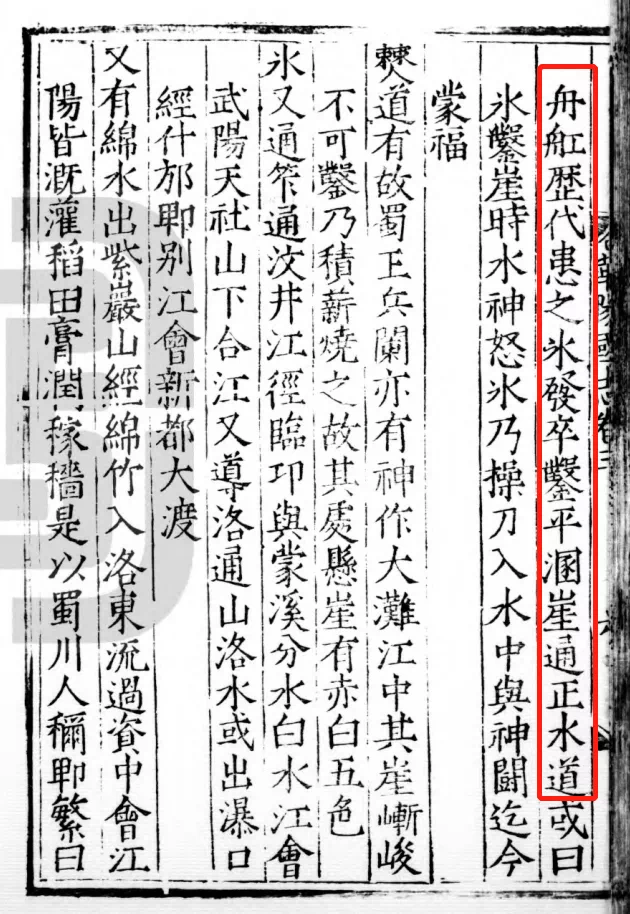 舟舡歴代患之氷發卒鑿平溷崖通正水道或曰
氷鑿崖時水神怒氷乃操刀入水中與神鬭迄今
蒙福
僰道有故蜀王兵闌亦有神作大灘江中其崖嶄峻
不可鑿乃積薪燒之故其處懸崖有赤白五色
氷又通笮通汶井江徑臨邛與蒙溪分水白水江會
武陽天社山下合江又導洛通山洛水或出瀑口
經什邡郫别江會新都大渡
又有綿水出紫巖山經綿竹入洛東流過資中會江
陽皆溉灌稻田膏潤稼穡是以蜀川人稱郫繁曰